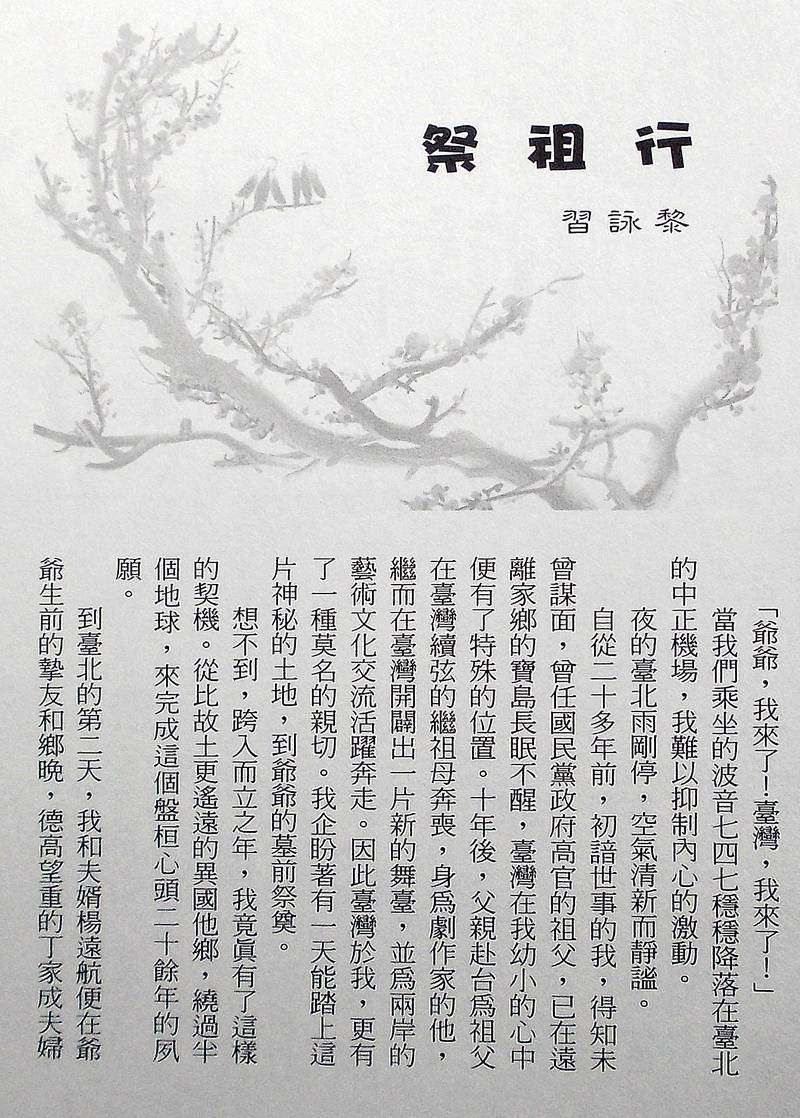 祭祖行
習詠黎
「爺爺，我來了！臺灣，我來了！」
當我們乘坐的波音七四七穩穩降落在臺北
的中正機場，我難以抑制內心的激動。
夜的臺北雨剛停，空氣清新而靜謐。
自從二十多年前，初諳世事的我，得知未
曾謀面，曾任國民黨政府高官的祖父，已在遠
離家鄉的寶島長眠不醒，臺灣在我幼小的心中
便有了特殊的位置。十年後，父親赴台爲祖父
在臺灣續弦的繼祖母奔喪，身爲劇作家的他，
繼而在臺灣開闢出一片新的舞臺，並爲兩岸的
藝術文化交流活躍奔走。因此臺灣於我，更有
了一種莫名的親切。我企盼著有一天能踏上這
片神秘的土地，到爺爺的墓前祭奠。
想不到，跨入而立之年，我竟眞有了這樣
的契機。從比故土更遙遠的異國他鄉，繞過半
個地球，來完成這個盤桓心頭二十餘年的夙
願。
到臺北的第二天，我和夫婿楊遠航便在爺
爺生前的摯友和鄉晚，德高望重的丁家成夫婦